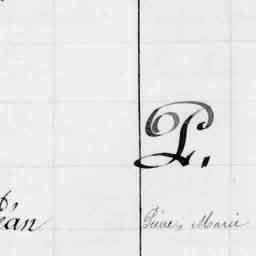 P.
Jean
Pierre, Marie